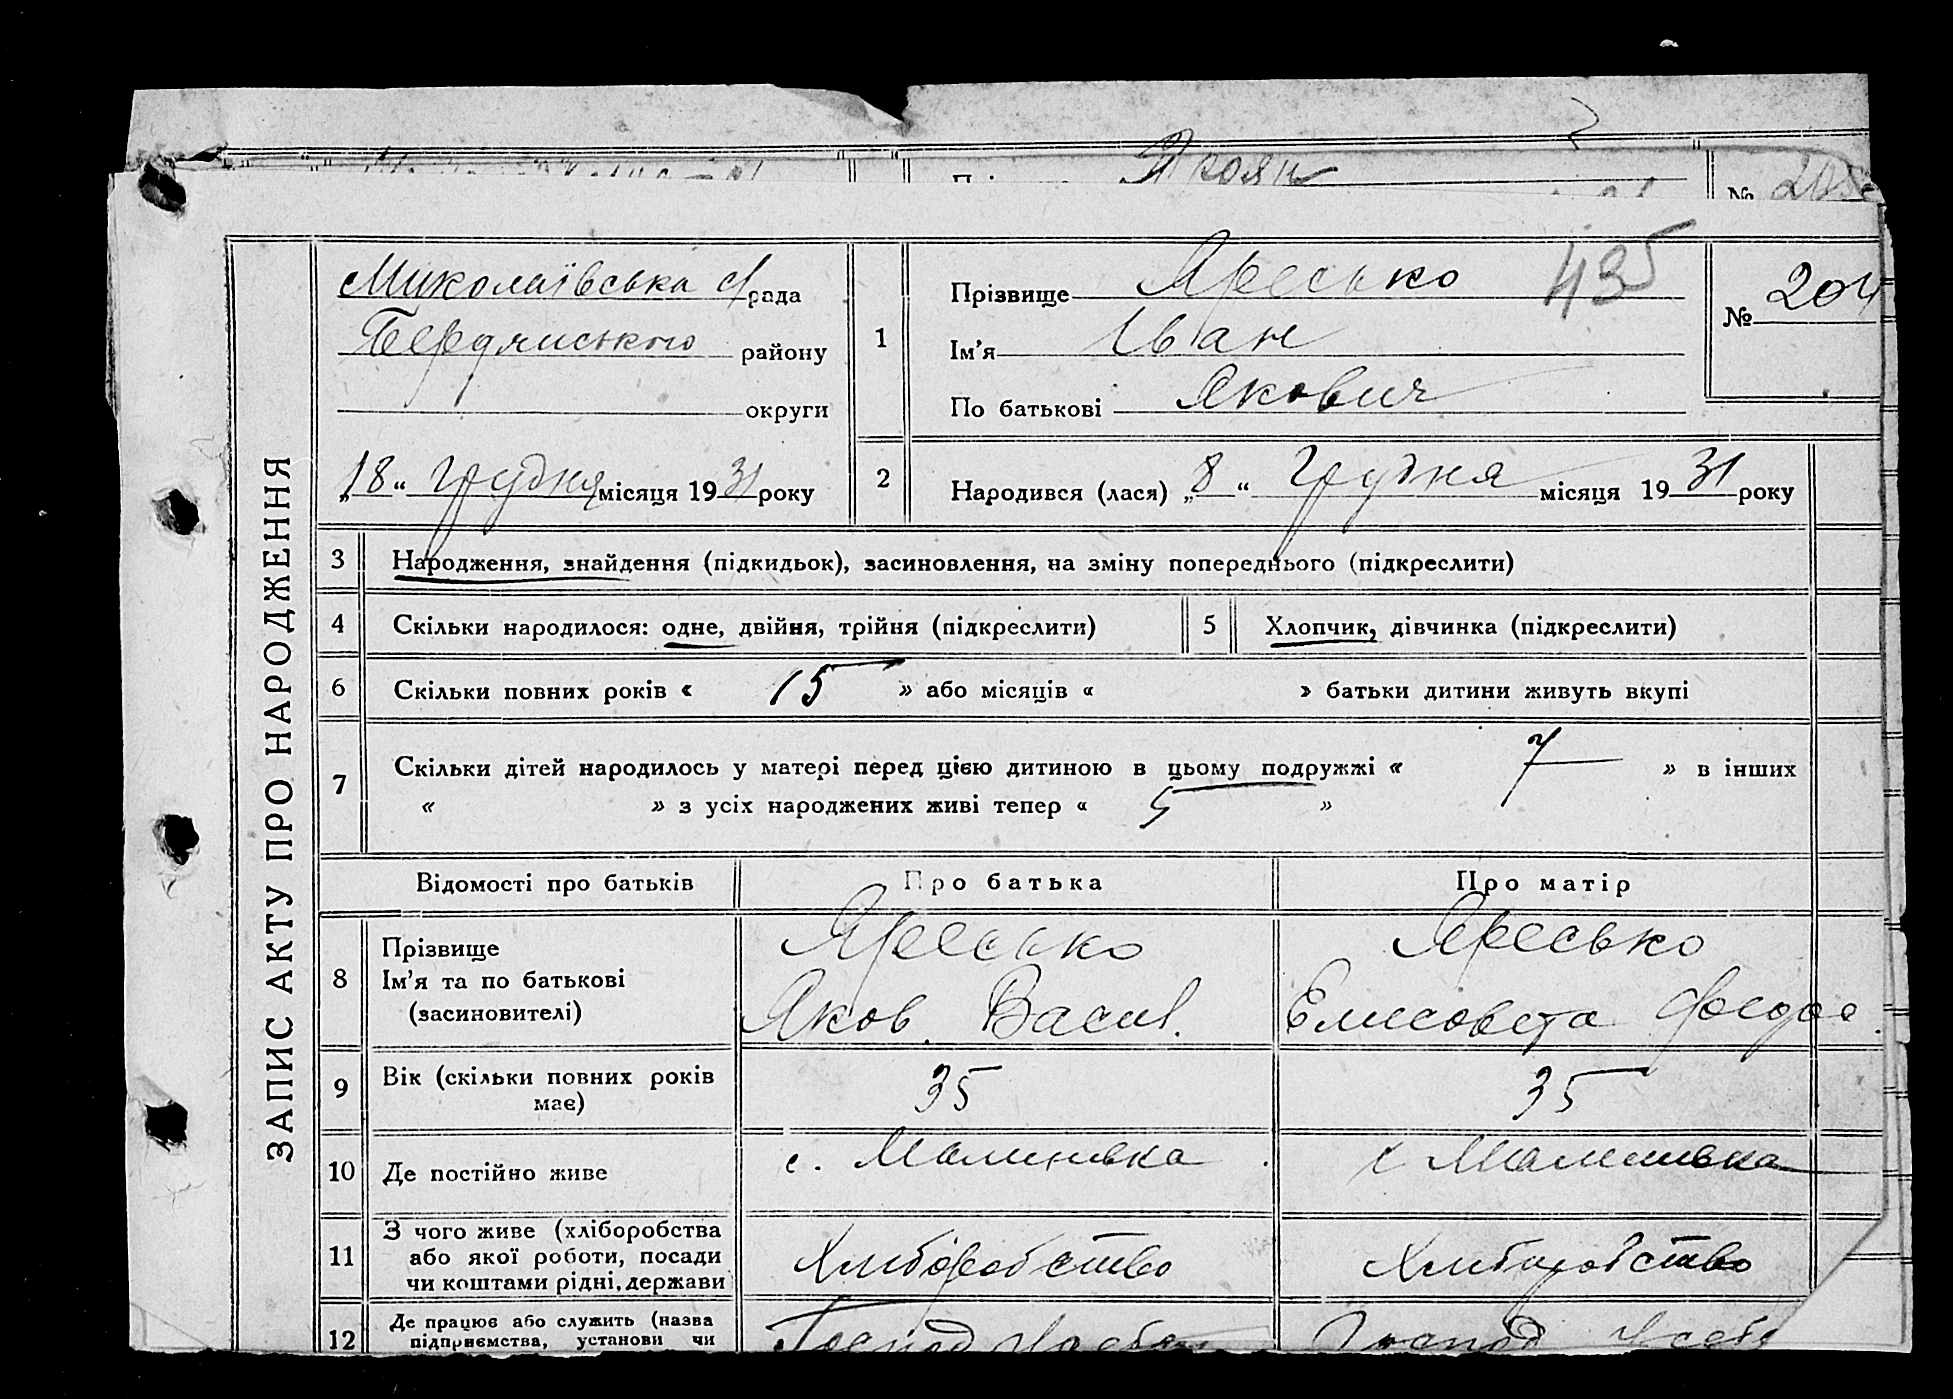 Якоян
№ 205
ЗАПИС АКТУ ПРО НАРОДЖЕННЯ
Миколаївська с/рада
Бердянського району
округи
„18“ грудня місяця 1931 року
1
Прізвище Яресько
435
Ім'я Іван
По батькові Якович
№ 204
2
Народився (лася) „8“ грудня місяця 1931 року
3 Народження, знайдення (підкидьок), засиновлення, на зміну попереднього (підкреслити)
4 Скільки народилося: одне, двійня, трійня (підкреслити) 5 Хлопчик, дівчинка (підкреслити)
6 Скільки повних років « 15 » або місяців « » батьки дитини живуть вкупі
7 Скільки дітей народилось у матері перед цією дитиною в цьому подружжі « 7 » в інших
« » з усіх народжених живі тепер « 5 »
Відомості про батьків Про батька Про матір
8 Прізвище Яресько Яресько
Ім'я та по батькові
(засиновителі) Яков Васил. Елисовета Федос.
9 Вік (скільки повних років має) 35 35
10 Де постійно живе с. Малинівка с Малинівка
11 З чого живе (хліборобства
або якої роботи, посади Хліборобство Хліборобство
чи коштами рідні, держави
12 Де працює або служить (назва
підприємства, установи чи Господ